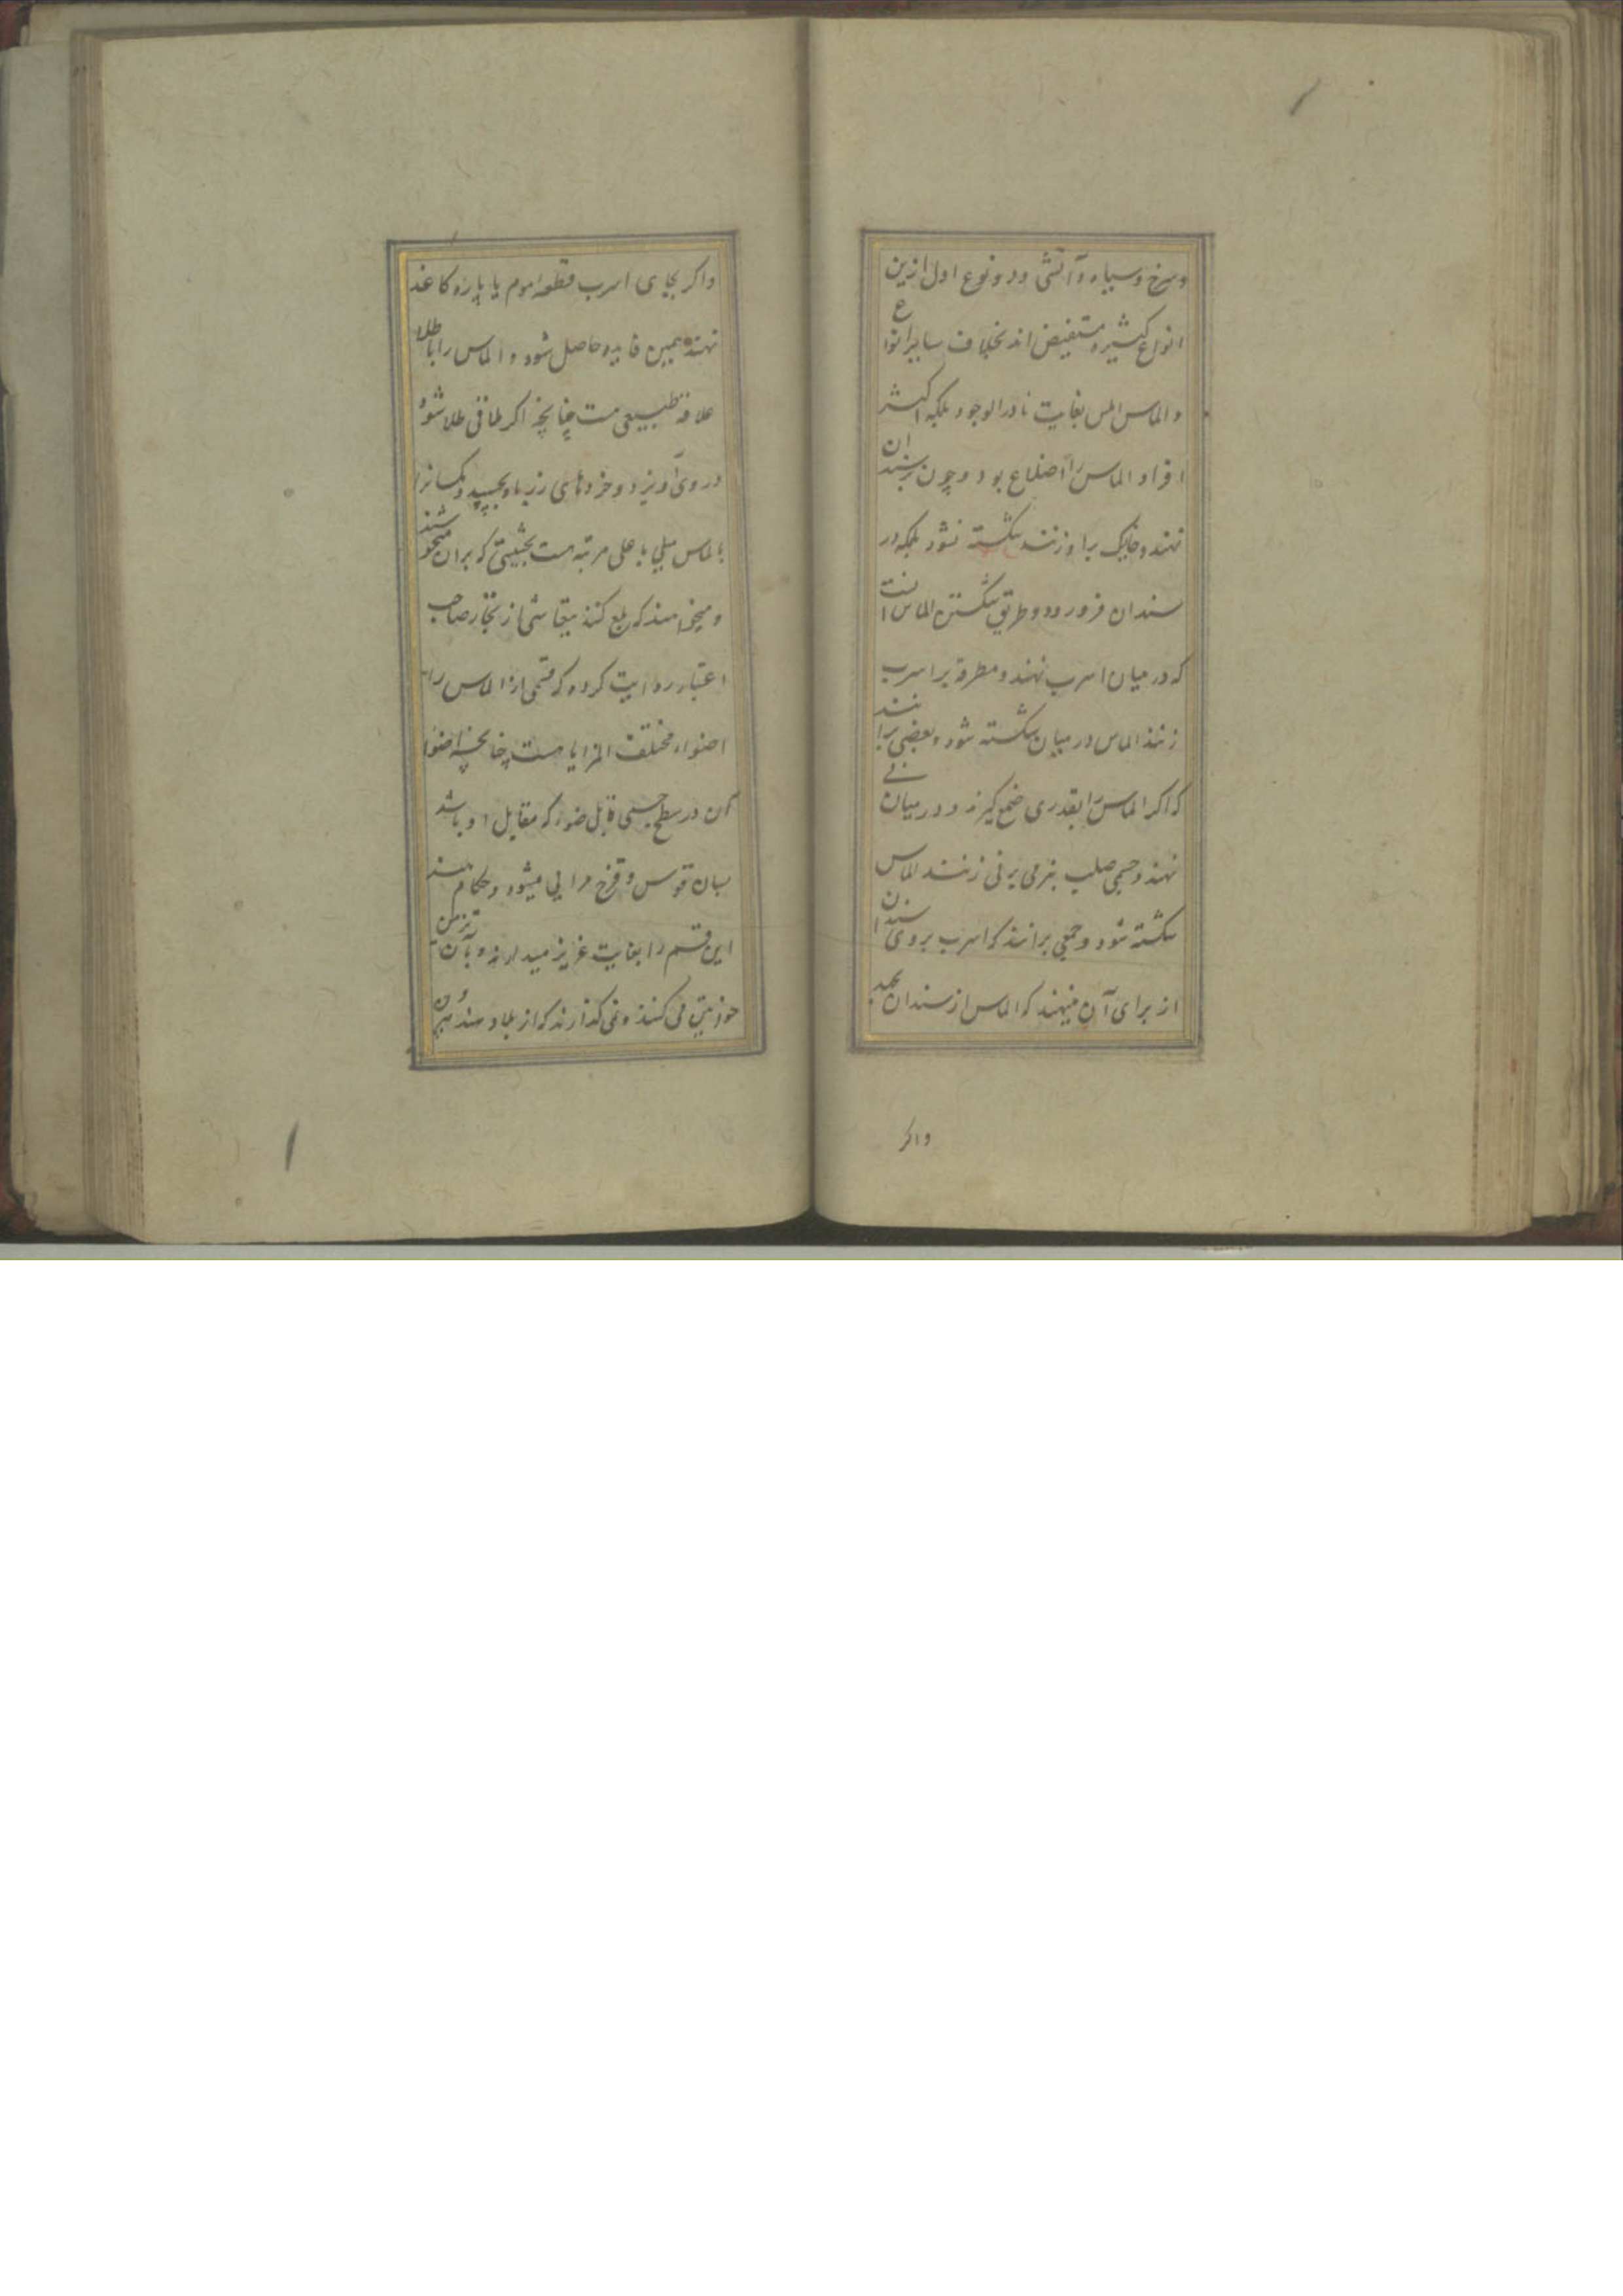 وسرخ وسیاه وآتشی ودو نوع اول ازین
انواع کثیره مستفیض اند بخلاف سایر انواع
والماس املس بغایت نادر الوجود بلکه اکثر
افراد الماس را اضلاع بود وچون بر سندان
نهند وخایسک برو زنند شکسته نشود بلکه در
سندان فرو رود وطریق شکستن الماس آنست
که در میان اسرب نهند ومطرقه بر اسرب
زنند الماس در میان شکسته شود وبعضی برانند
که اگر الماس را بقدری ضمغ گیرند ودر میان نی
نهند وجسمی صلب بنرمی بر نی زنند الماس
شکسته شود وجمعی برانند که اسرب بر روی سندان
از برای آن مینهند که الماس از سندان بجهد
واکر
واکر بجای اسرب قطعه موم یا پاره کاغذ
نهند همین فایده حاصل شود والماس را با طلا
علاقه طبیعی هست چنانچه اکر طافی طلا شود
در وی آویزد وخردهای زر باو بچسپد ومکسانرا
بالماس میلی باعلی مرتبه هست بحیثیتی که بران
ومیخواهند که بلع کنند شی از تجار صاحب
اعتبار روایت کرده که قسمی از الماس را
اضواء مختلف المزایا هست چنانچه اضواء
آن در سطح جسمی قابل ضوء که مقابل او باشد
بسان قوس وقزح مرایی میشود وحکام هند
این قسم را بغایت عزیز میدارند وبآن تزمن
خواتین می کنند ونمی کذارند که از بلاد هند بیرون